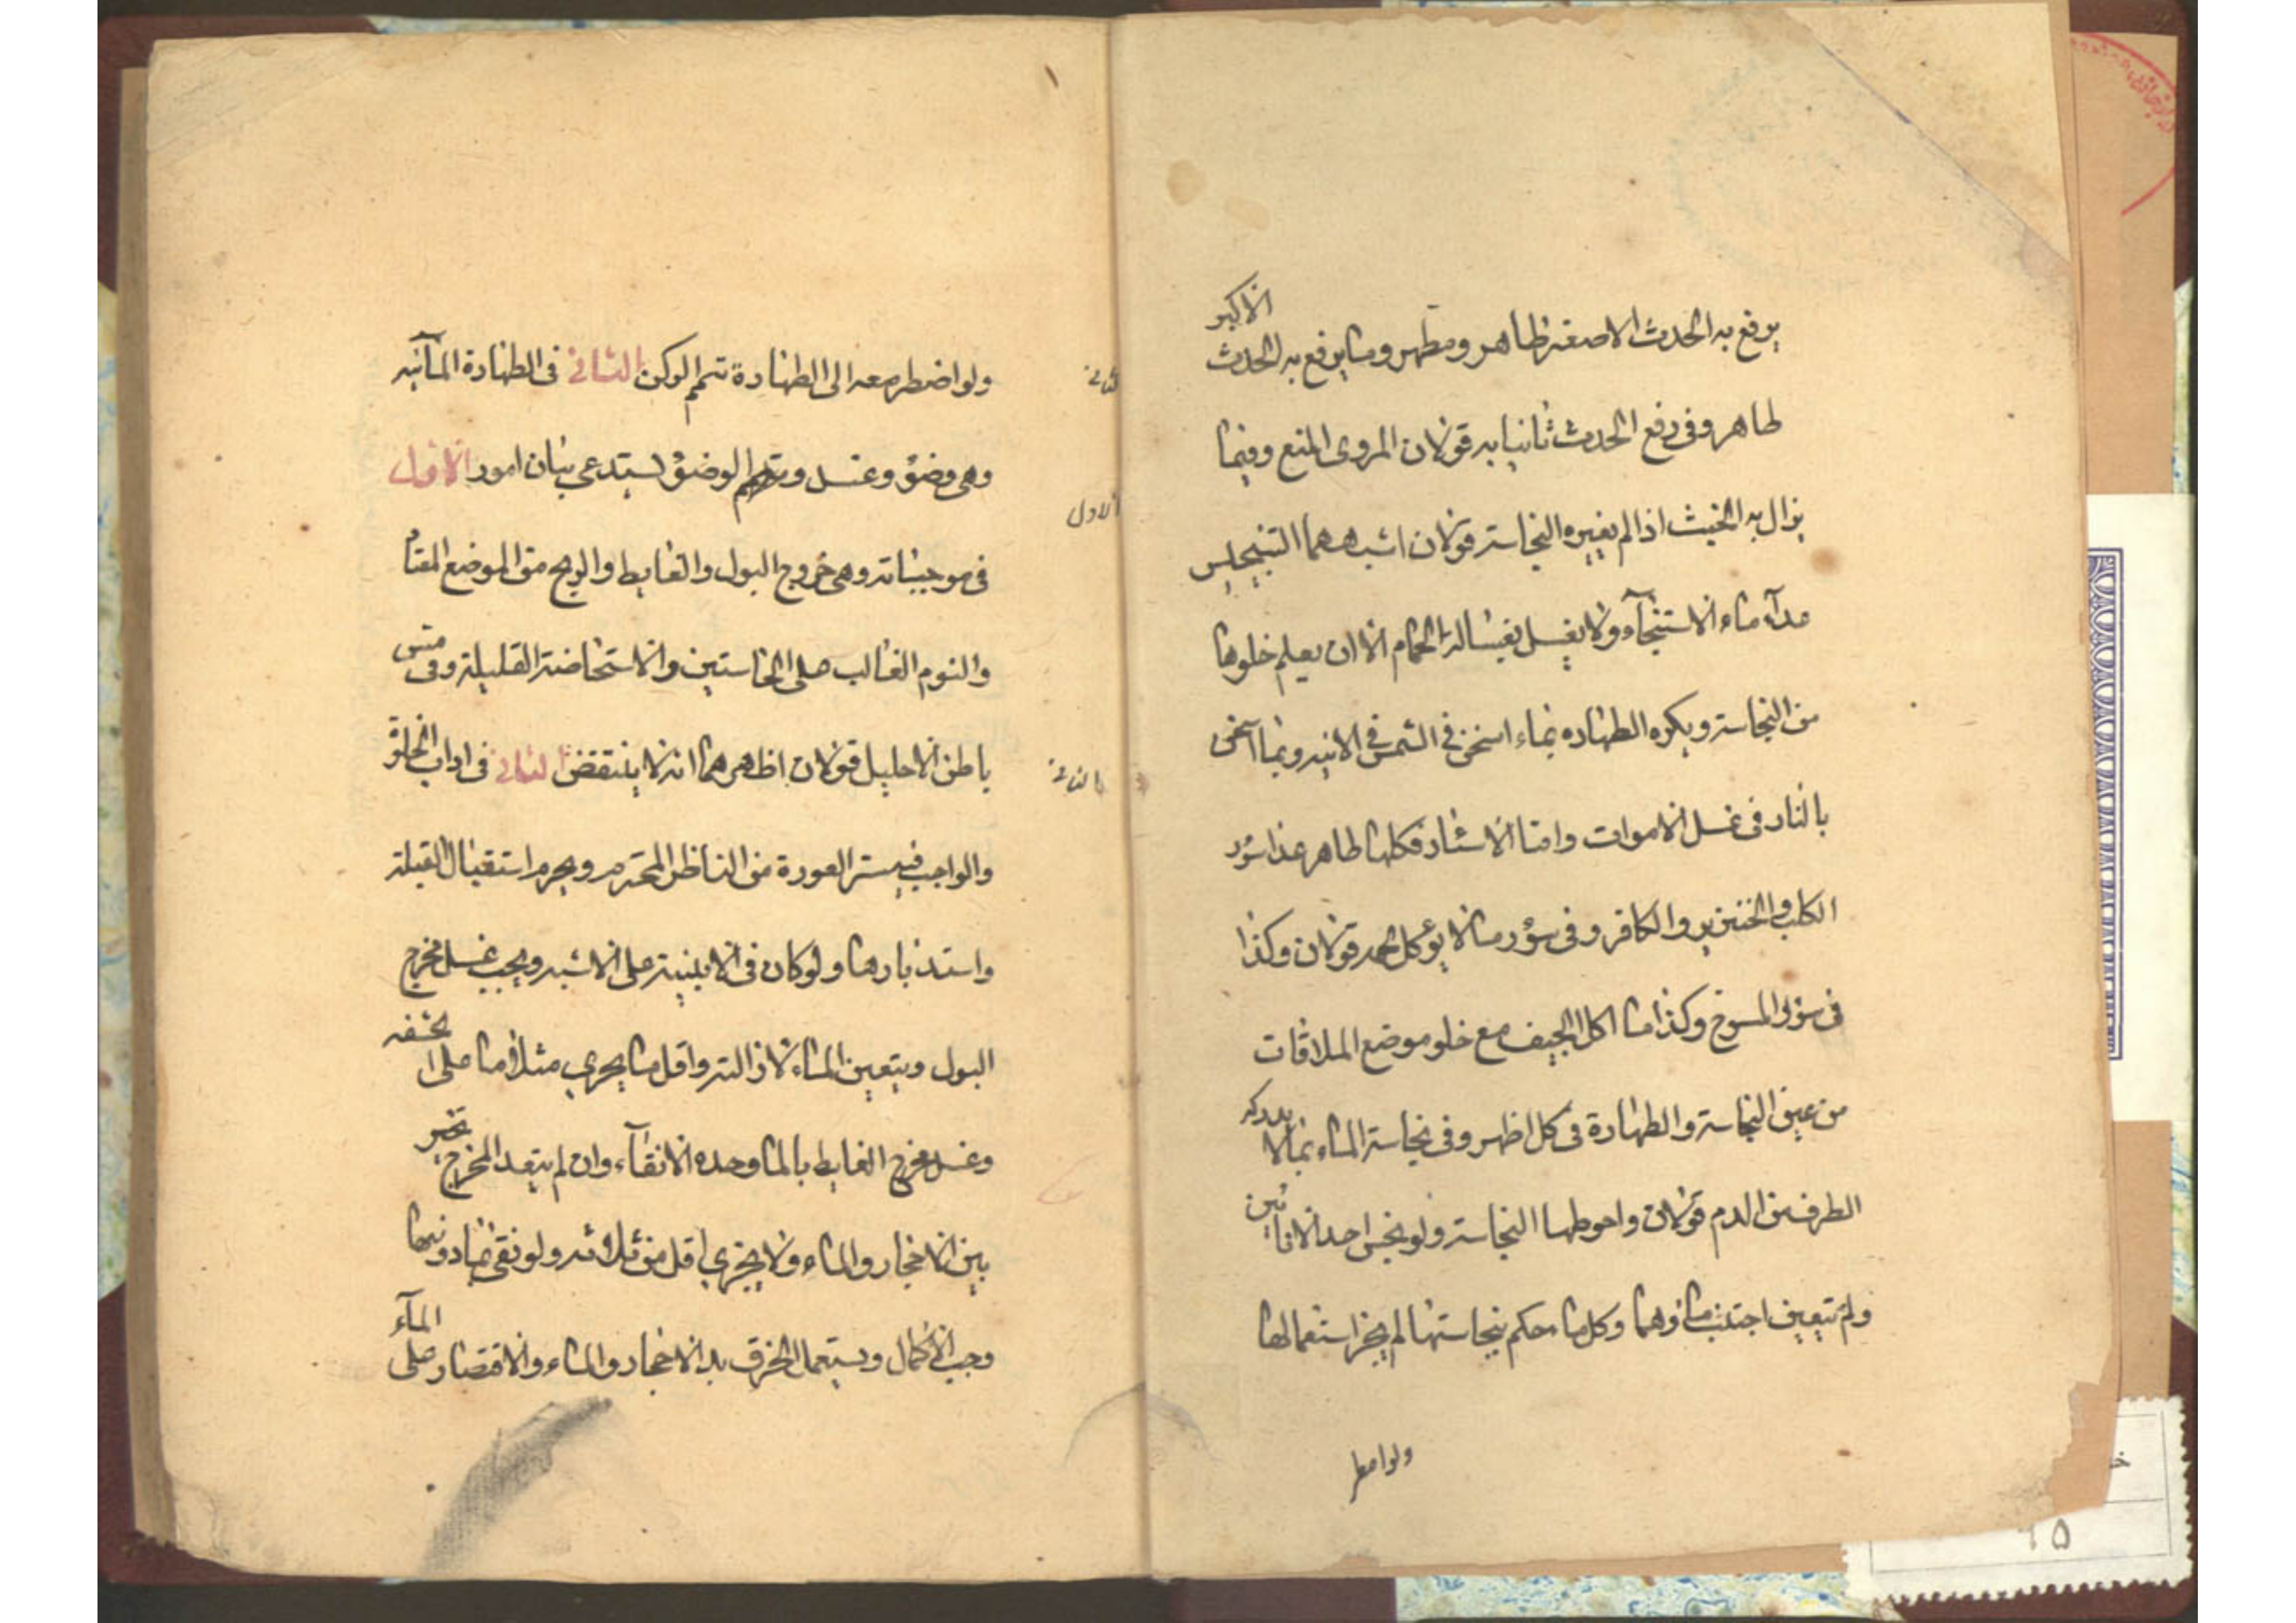 يرفع به الحدث الاصغر طاهر ومطهر وما يرفع به الحدث الاكبر
طاهر وفى رفع الحدث ثانيا به قولان المروى المنع وفيما
يزال به الخبث اذا لم يغيره النجاسة قولان اشبههما التنجيس
عدا ماء الاستنجآء ولا يغسل بغسالة الحمام الا ان يعلم خلوها
من النجاسة ويكره الطهاره بماء اسخن فى الشمس فى الانيه وبما اسخن
بالنار فى غسل الاموات واما الاسئار فكلها طاهر عدا سؤر
الكلب والخنزير والكافر وفى سؤر ما لا يؤكل لحمه قولان وكذا
فى سؤر المسوخ وكذا ما اكل الجيف مع خلو موضع الملاقات
من عين النجاسة والطهارة فى كل اظهر وفى نجاسة الماء بما لا يدركه
الطرف من الدم قولان واحوطها النجاسة ولو نجس احد الانائين
ولم يتعين اجتنب ماؤهما وكل ما حكم بنجاستها لم يجز استعمالها
ولو اضطر
ولو اضطر معه الى الطهارة تيمم الركن الثانى فى الطهارة المآئيه
الثانى
وهى وضؤ وغسل ويتمم الوضؤ يستدعى بيان امور الاول
الاول
فى موجباته وهى خروج البول والغايط والريح من الموضع المعتاد
والنوم الغالب على الحاستين والاستحاضة القليلة وفى مس
باطن الاحليل قولان اظهرهما انه لا ينتقض الثانى فى اداب الخلوة
الثانى
والواجب فيه ستر العورة من الناظر المحترم ويحرم استقبال القبلة
واستدبارها ولو كان فى الابنية على الاشبه ويجب غسل مخرج
البول ويتعين الماء لازالته واقل ما يجرى مثلا ما على الحشفه
وغسل مخرج الغايط بالماء وحده الانقآء وان لم يتعد المخرج تخير
بين الاحجار والماء ولا يجزى اقل من ثلاثه ولو نقى بما دونها
وجب الاكمال ويستعمل الخرق بدل الاحجار والماء والاقتصار على المآء
٦٥